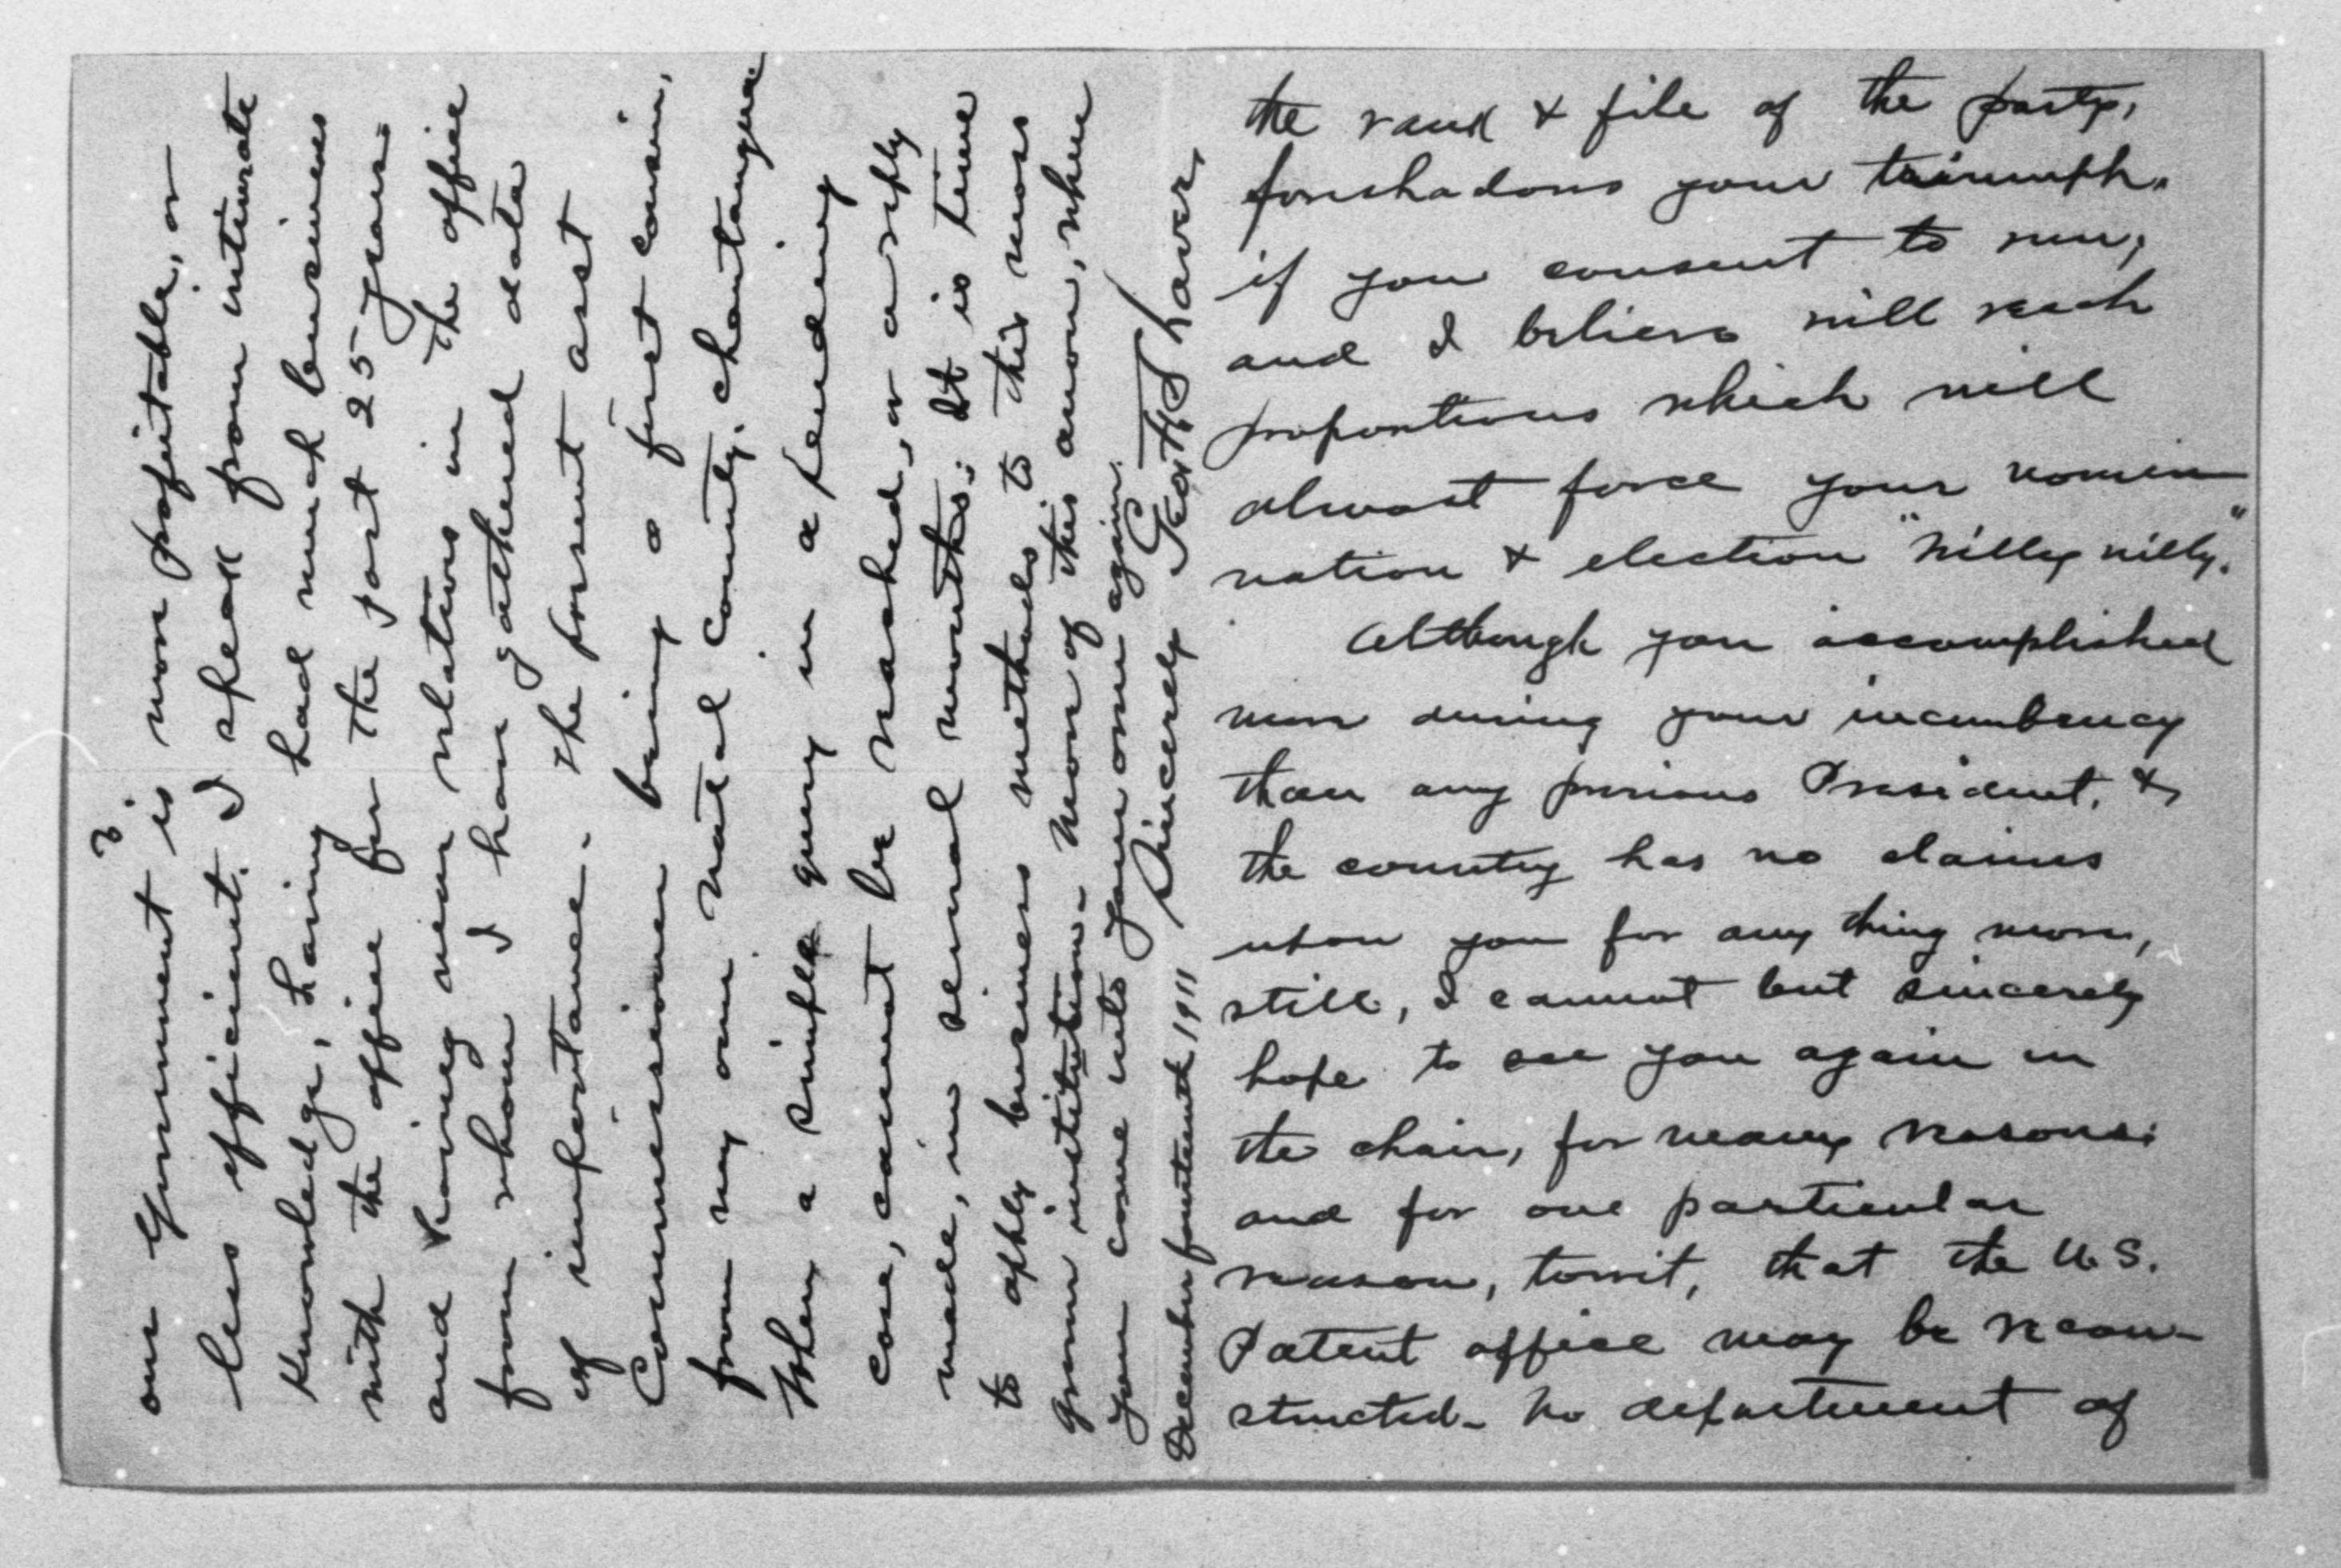 the rank & file of the party,
foreshadows your triumph.
if you consent to run;
and I believe will reach
proportions which will
almost force your nomin
nation & election "nilly nilly."
Although you accomplished
more during your incumbency
than any previous President, &
the country has no claims
upon you for any thing more,
still, I cannot but sincerely
hope to see you again in
the chair, for many reasons;
and for one particular
reason, towit, that the U.S.
Patent office may be recon-
structed- No department of
3
our Government is more profitable, or
less efficient. I speak from intimate
knowledge, having had much business
with the office for the past 25 years.
and having near relatives in the office
from whom I have gathered data
of importance. The present asst
Commissioner being a first cousin,
from my own natal county, Chautauqua.
When a simple query in a pending
case, cannot be reached, or a reply
made, in several months; It is time
to apply business methods to this most
grown institution- More of this anon, when
you come into your own again.
Sincerely Geo. H. Shaver,
December fourteenth 1911